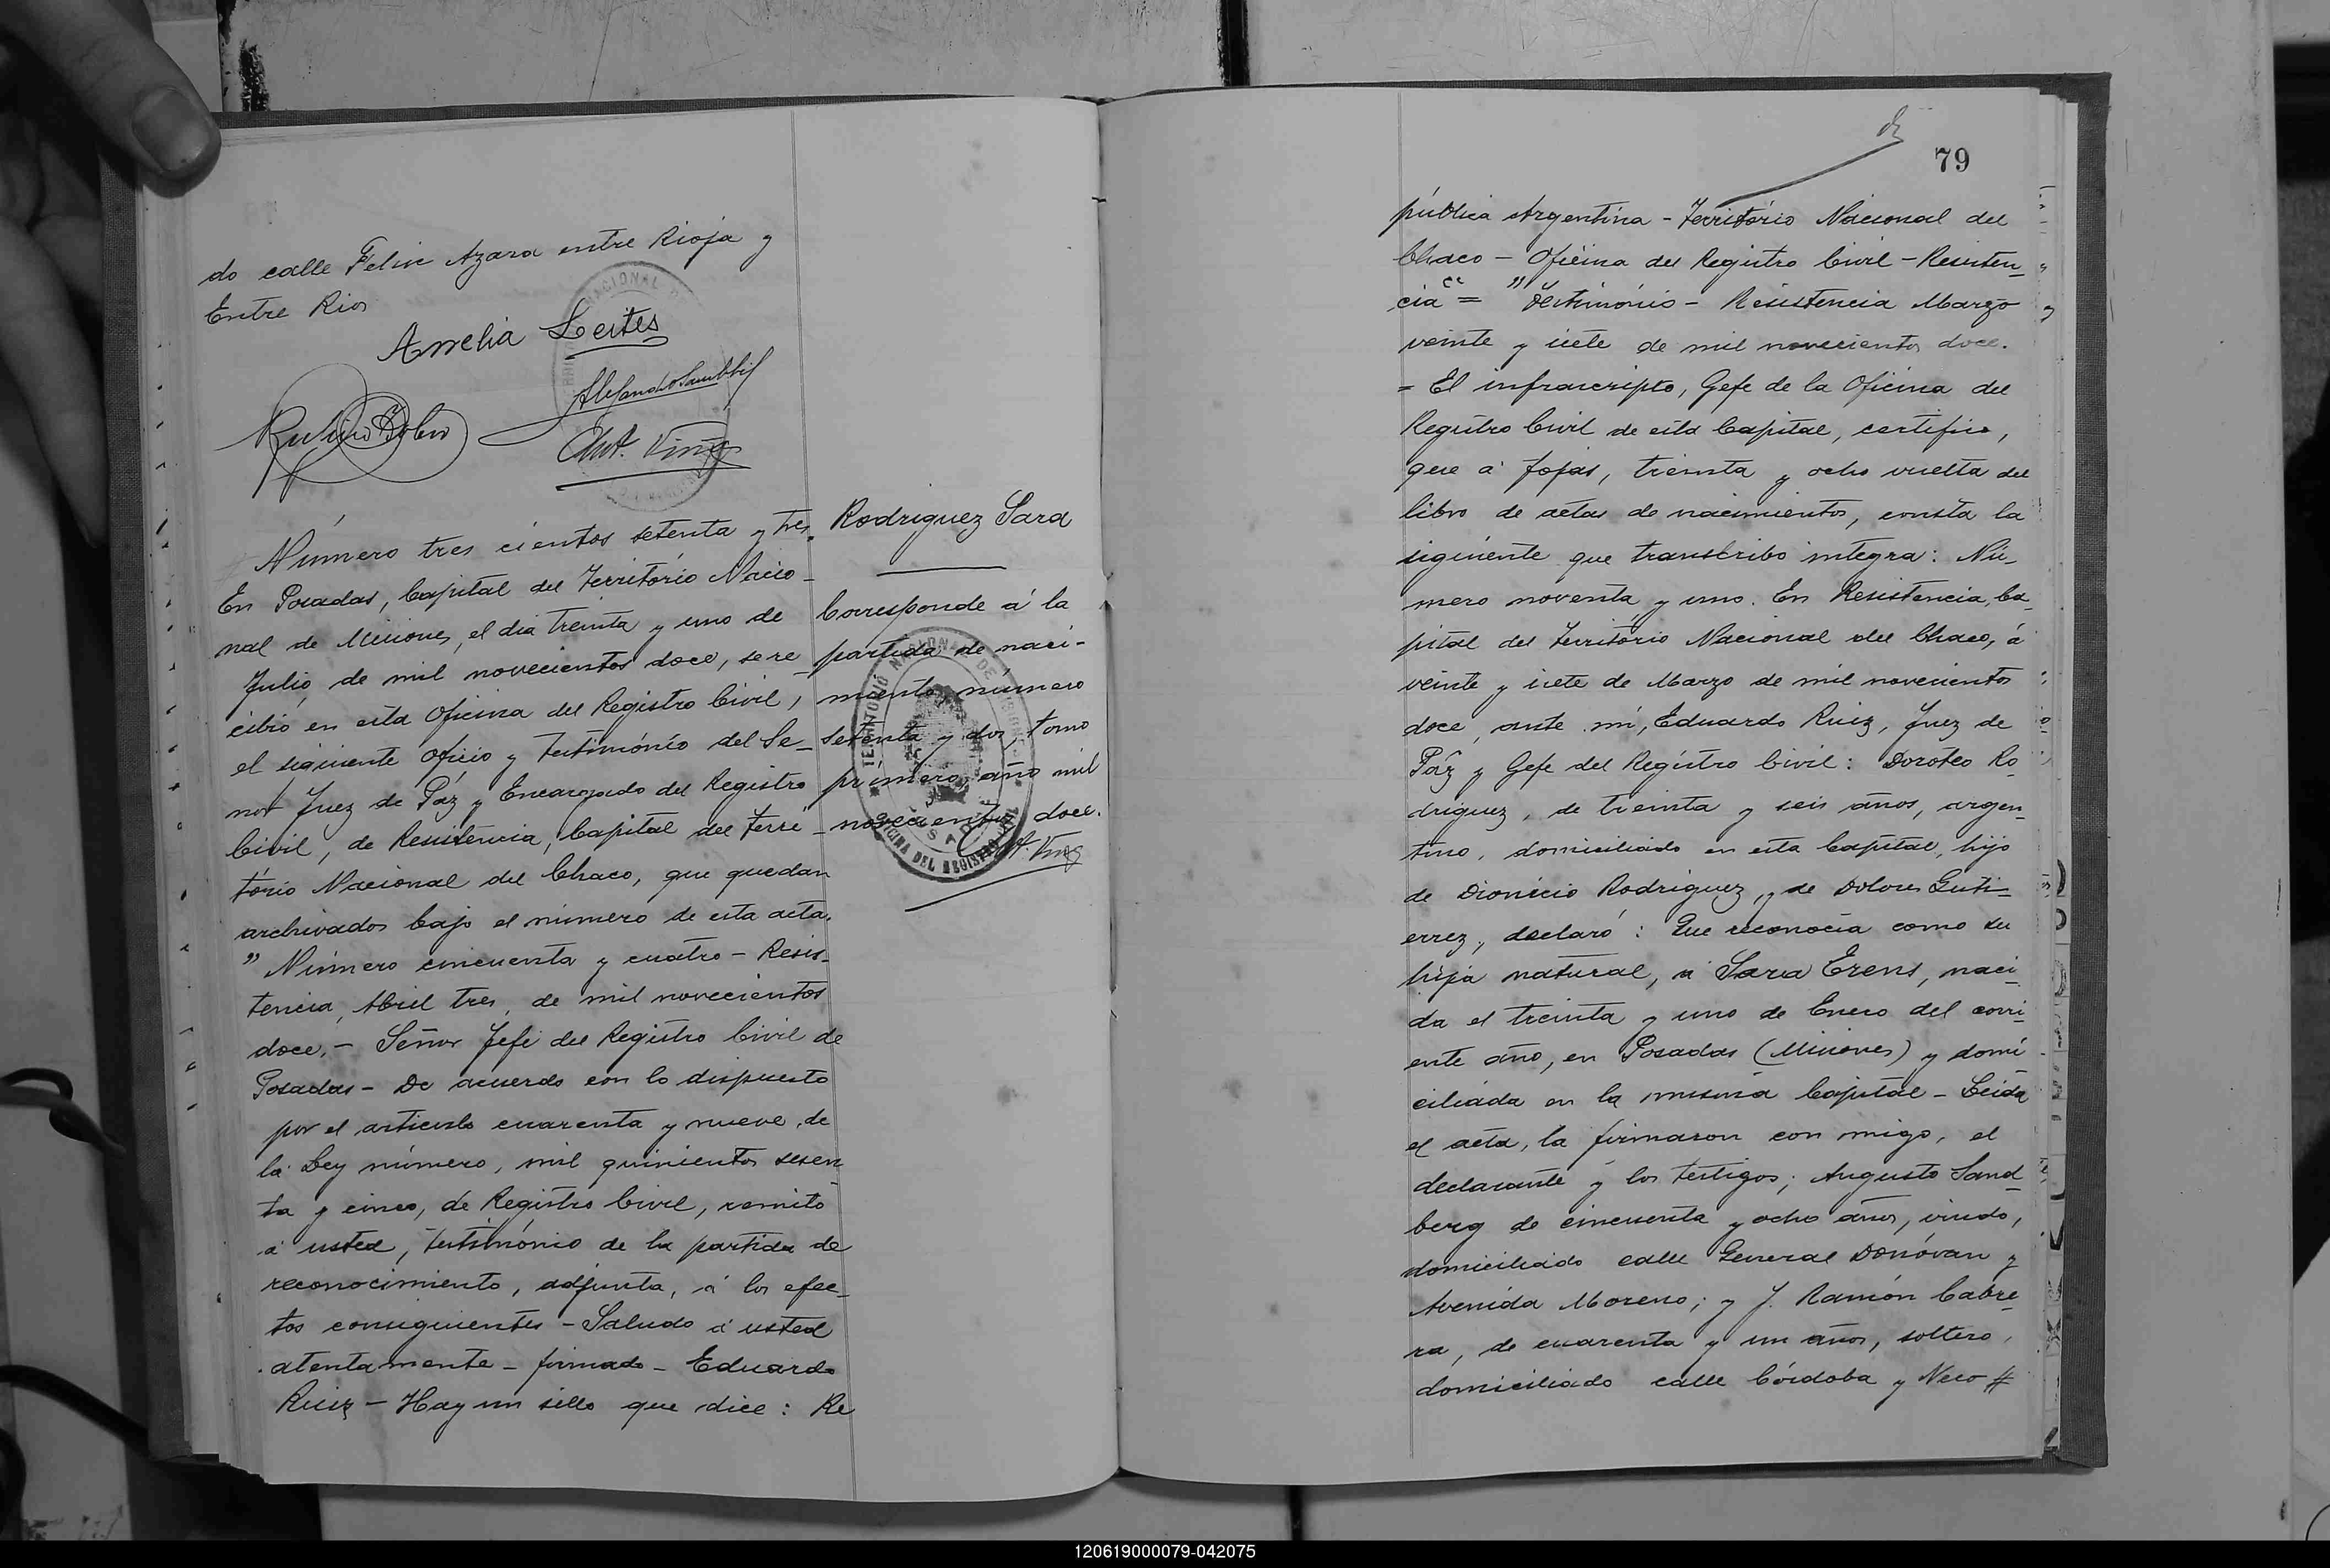 do calle Felix Azara entre Rioja y
Entre Rios
Amelia Leites
Número tres cientos setenta y tres.
En Posadas, Capital del Território Nacio-
nal de Misiones, el dia treinta y uno de
Julio, de mil novecientos doce, se re-
cibió en esta Oficina del Registro Civil,
el siguiente Oficio y testimónio del Se-
nor Juez de Páz y Encargado del Registro
Civil, de Resistencia, Capital del Terri-
tório Nacional del Chaco, que quedan
archivados bajo el número de esta acta.
" Número cincuenta y cuatro - Resis-
tencia, Abril tres, de mil novecientos
doce. - Señor Jefe del Registro Civil de
Posadas - De acuerdo con lo dispuesto
por el articulo cuarenta y nueve, de
la Ley número, mil quinientos sesen
ta y cinco, de Registro Civil, remito
á usted, testimónio de la partida de
reconocimiento, adjunta, á los efec-
tos consiguientes - Saludo á usted
atentamente - firmado - Eduardo
Ruiz - Hay un sello que dice: Re
Rodriguez Sara
Corresponde á la
partida de naci-
miento, número
setenta y dos, tomo
primero, año mil
novecientos doce.
TERRITORIO NACIONAL DE MISIONES
OFICINA DEL REGISTRO CIVIL
POSADAS
79
pública Argentina - Território Nacional del
Chaco - Oficina del Registro Civil - Resisten-
cia" = "Testimónio - Resistencia Marzo
veinte y siete de mil novecientos doce.
= El infrascripto, Gefe de la Oficina del
Registro Civil de esta Capital, certifico,
que á fojas, treinta y ocho vuelta del
libro de actas de nacimientos, consta la
siguiente que transcribo integra: Nú-
mero noventa y uno. En Resistencia, Ca-
pital del Territorio Nacional del Chaco, á
veinte y siete de Marzo de mil novecientos
doce, ante mi, Eduardo Ruiz, Juez de
Páz y Gefe del Registro Civil: Doroteo Ro-
driguez, de treinta y seis años, argen-
tino, domiciliado en esta Capital, hijo
de Dionicio Rodriguez, y de Dolores Guti-
errez, declaró: Que reconocia como su
hija natural, á Sara Erens, naci-
da el treinta y uno de Enero del corri-
ente año, en Posadas (Misiones) y domi
ciliada en la misma Capital - Leida
el acta, la firmaron con migo, el
declarante y los testigos; Augusto Sand-
berg de cincuenta y ocho años, viudo,
domiciliado calle General Donóvan y
Avenida Moreno; y J. Ramón Cabre-
ra, de cuarenta y un años, soltero,
domiciliado calle Córdoba y Neco #
120619000079-042075